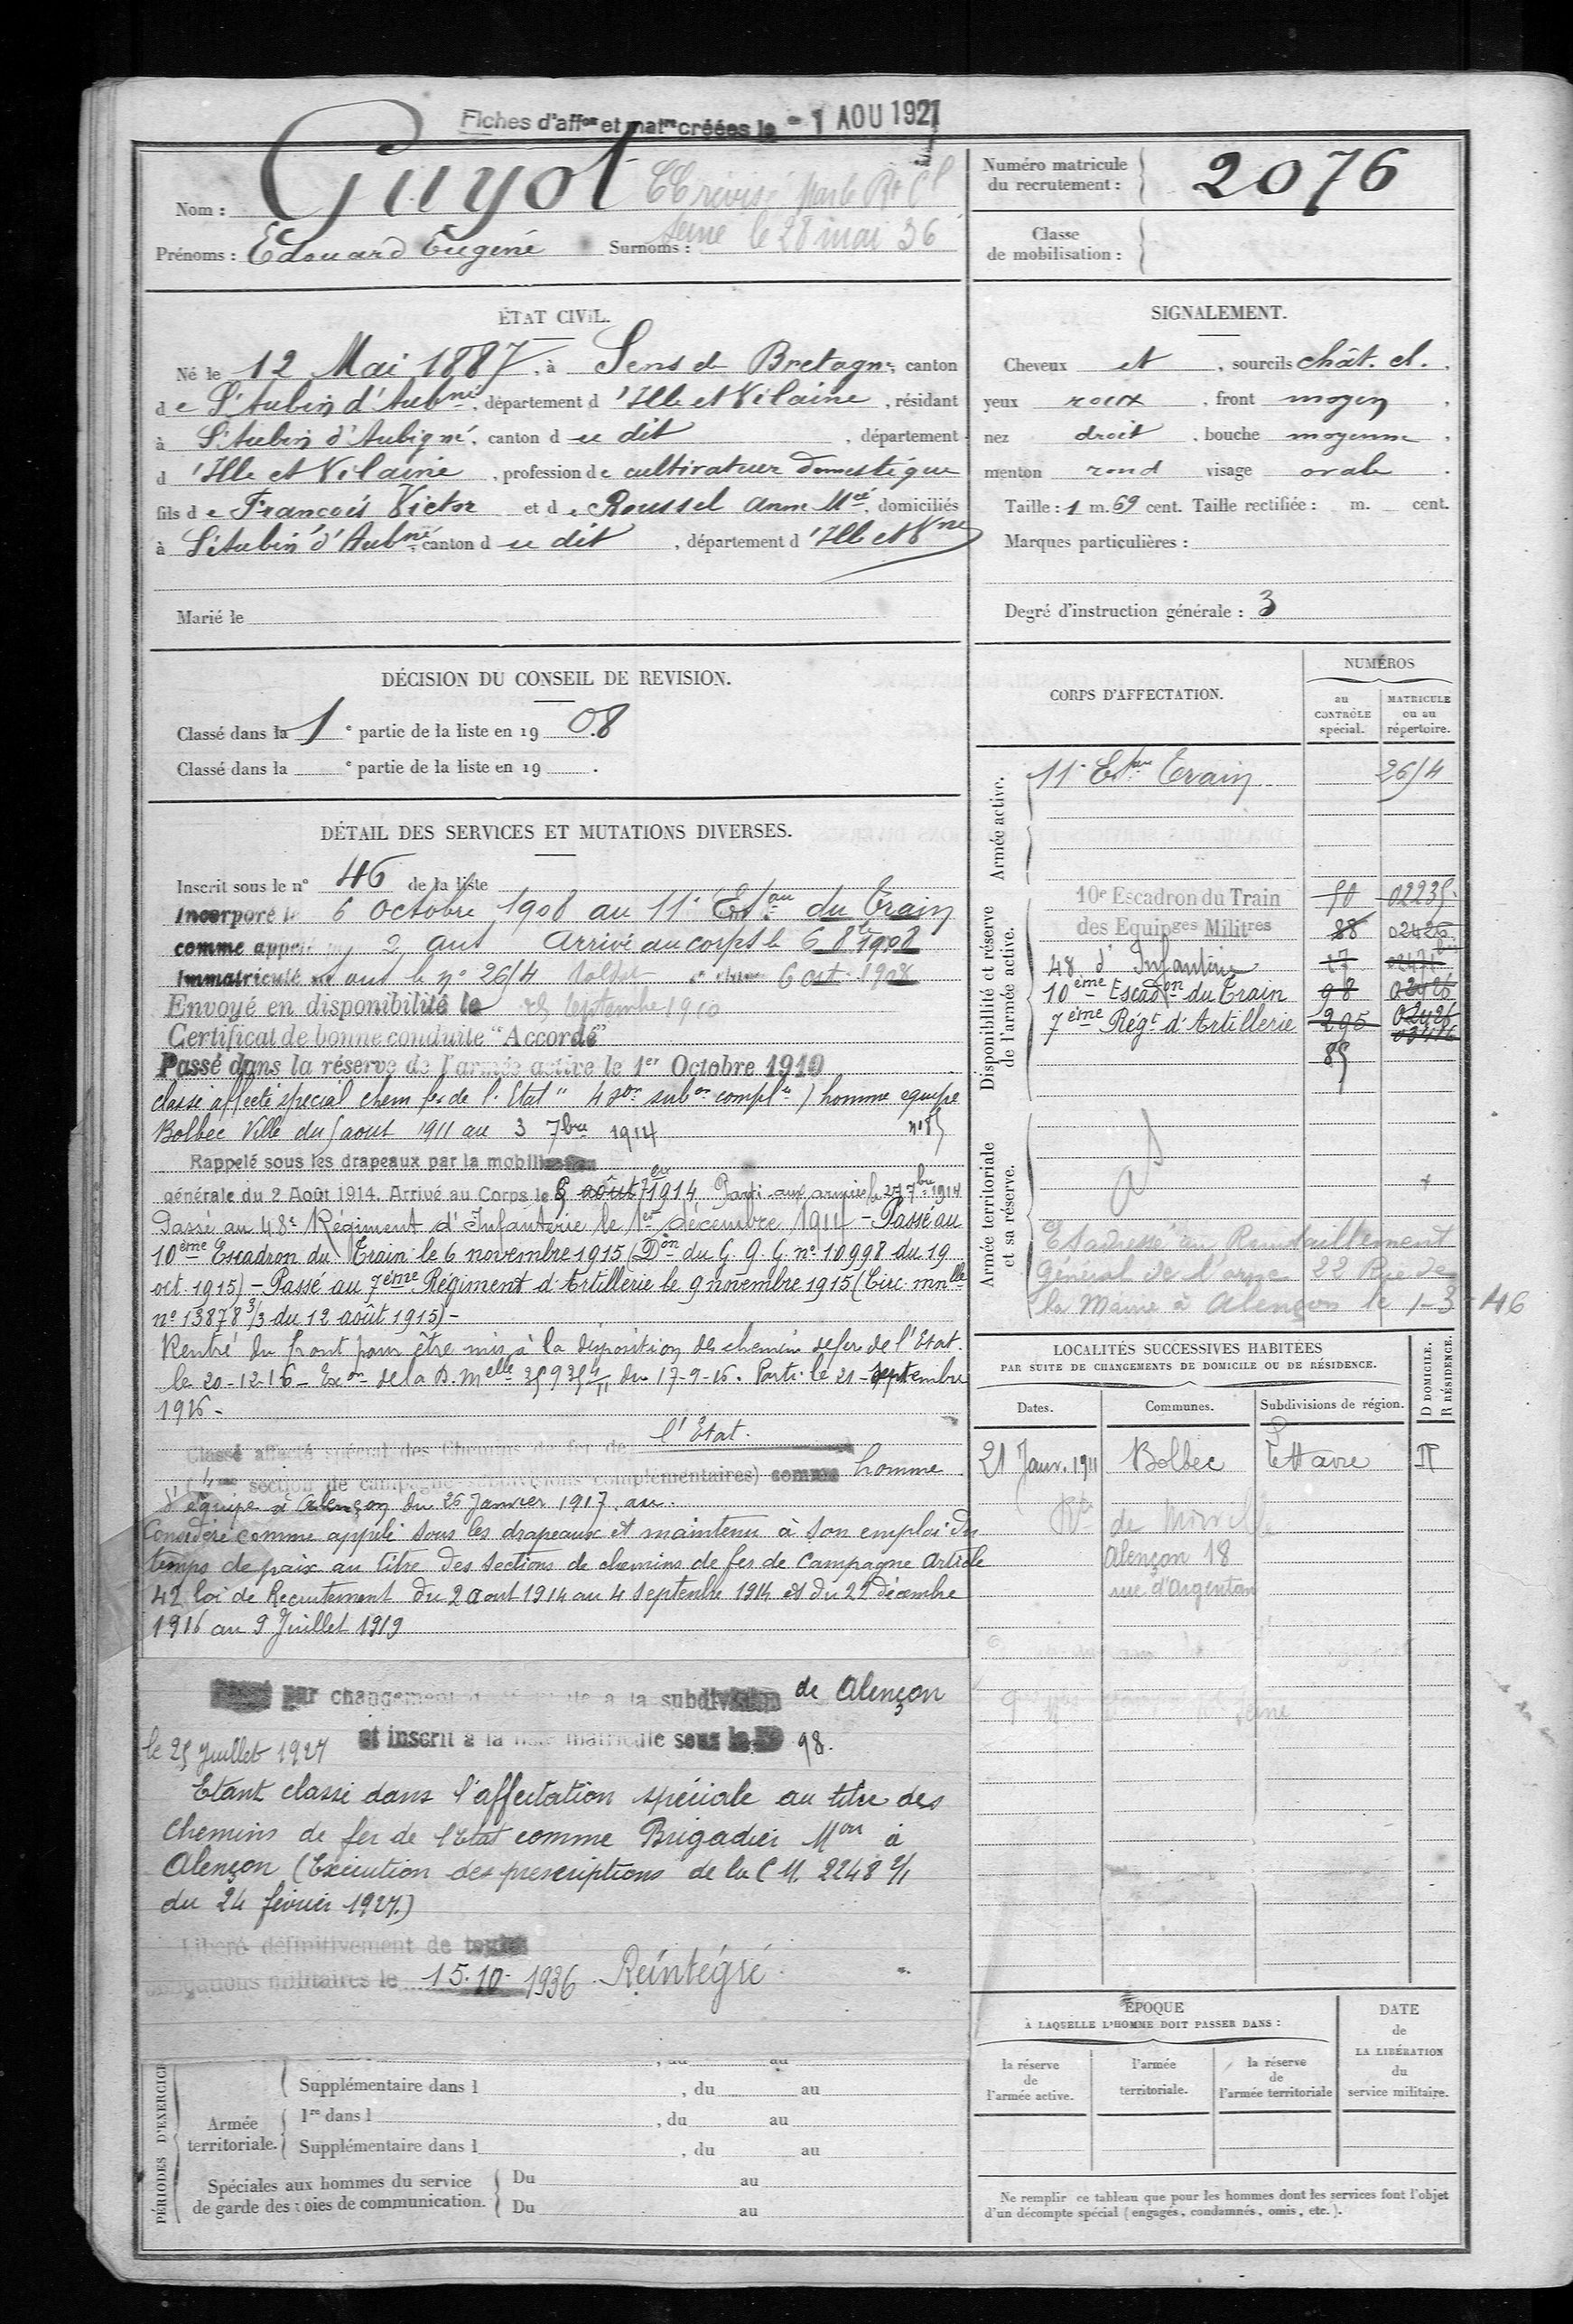 Fiches d'affon et matre créées le - 1 AOU 1927
Nom : Guyot
Prénoms : Edouard Eugène Surnoms :
le 28 mai 36
Numéro matricule du recrutement : 2076
Classe de mobilisation :
ÉTAT CIVIL.
Né le 12 Mai 1887, à Sens de Bretagne, canton
de St Aubin d'Aubné, département d'Ille et Vilaine, résidant
à St Aubin d'Aubigné, canton du dit, département
d'Ille et Vilaine, profession de cultivateur domestique
fils de François Victor et de Roussel Anne Mcé, domiciliés
à St Aubin d'Aubné, canton du dit, département d'Ille et Vne
Marié le
SIGNALEMENT.
Cheveux et, sourcils chât. cl.,
yeux roux, front moyen,
nez droit, bouche moyenne,
menton rond visage ovale.
Taille : 1 m. 69 cent. Taille rectifiée : m. cent.
Marques particulières :
Degré d'instruction générale : 3
DÉCISION DU CONSEIL DE REVISION.
Classé dans la 1e partie de la liste en 1908.
Classé dans la e partie de la liste en 19 .
DÉTAIL DES SERVICES ET MUTATIONS DIVERSES.
Inscrit sous le n° 46 de la liste
Incorporé le 6 Octobre 1908 au 11e Eson du Train
comme appelé 2 ans Arrivé au corps le 6 8bre 1908
Immatriculé sous le n° 2614 Soldat 6 oct. 1908
Envoyé en disponibilité le 25 Septembre 1910
Certificat de bonne conduite "Accordé"
Passé dans la réserve de l'armée active le 1er Octobre 1910
classé affecté spécial chem fer de l'Etat "4 son subon complre) homme equipe
Bolbec Ville du 5 aout 1911 au 3 7bre 1914 n° 85
Rappelé sous les drapeaux par la mobilisation
générale du 2 Août 1914. Arrivé au Corps le 5 août 7bre 1914 Parti aux armées le 27 7bre 1914
Passé au 48e Régiment d'Infanterie le 1er décembre 1914 - Passé au
10ème Escadron du Train le 6 novembre 1915 (Don du G. Q. G. n° 10998 du 19
oct. 1915) - Passé au 7ème Régiment d'Artillerie le 9 novembre 1915 (Circ. mnlle
n° 13878 3/3 du 12 août 1915) -
Rentré du front pour être mis à la disposition des chemin de fer de l'Etat.
le 20-12-16 - Exon de la D. Melle 35935 4/11 du 17-9-16. Parti le 21 - septembre
1916 -
Classé affecté spécial des Chemins de fer de l'Etat.
(4me section de campagne subdivisions complémentaires) comme homme
d'équipe à Alençon du 26 Janvier 1917 au
Considéré comme appelé sous les drapeaux et maintenu à son emploi du
temps de paix au titre des sections de chemins de fer de Campagne Article
42 loi de Recrutement du 2 Aout 1914 au 4 Septembre 1914 et du 22 décembre
1916 au 9 Juillet 1919
Passé par changement de domicile à la subdivision de Alençon
le 25 Juillet 1927 et inscrit à la liste matricule sous le N° 98.
Etant classé dans l'affectation spéciale au titre des
Chemins de fer de l'Etat comme Brigadier Mon à
Alençon (Exécution des prescriptions de la C M 2248 2/1
du 24 février 1927.)
Libéré définitivement de toutes
obligations militaires le 15.10.1936 Réintégré
PÉRIODES D'EXERCICE
Supplémentaire dans l , du au
Armée territoriale.
1re dans l , du au
Supplémentaire dans l , du au
Spéciales aux hommes du service de garde des voies de communication.
Du au
Du au
CORPS D'AFFECTATION.
NUMÉROS
au CONTRÔLE spécial.
MATRICULE ou au répertoire.
Armée active.
11e Eson Train 2614
Disponibilité et réserve de l'armée active.
10e Escadron du Train 50 02235
des Equipges Militres 88 02426
48 d'Infanterie 17
10ème Escadon du Train 98 02426
7ème Régt d'Artillerie 295 02426
03416
85
Armée territoriale et sa réserve.
AS
Est adressé au Ravitaillement
Général de l'orne 22 Rue de
la Mairie à Alençon le 1-3-46
LOCALITÉS SUCCESSIVES HABITÉES
PAR SUITE DE CHANGEMENTS DE DOMICILE OU DE RÉSIDENCE.
D DOMICILE. R RÉSIDENCE.
Dates. Communes. Subdivisions de région.
21 Janv. 1911 Bolbec Le Havre R
Alençon 18
rue d'Argentan
ÉPOQUE
À LAQUELLE L'HOMME DOIT PASSER DANS :
la réserve de l'armée active.
l'armée territoriale.
la réserve de l'armée territoriale
DATE de LA LIBÉRATION du service militaire.
Ne remplir ce tableau que pour les hommes dont les services font l'objet
d'un décompte spécial (engagés, condamnés, omis, etc.).